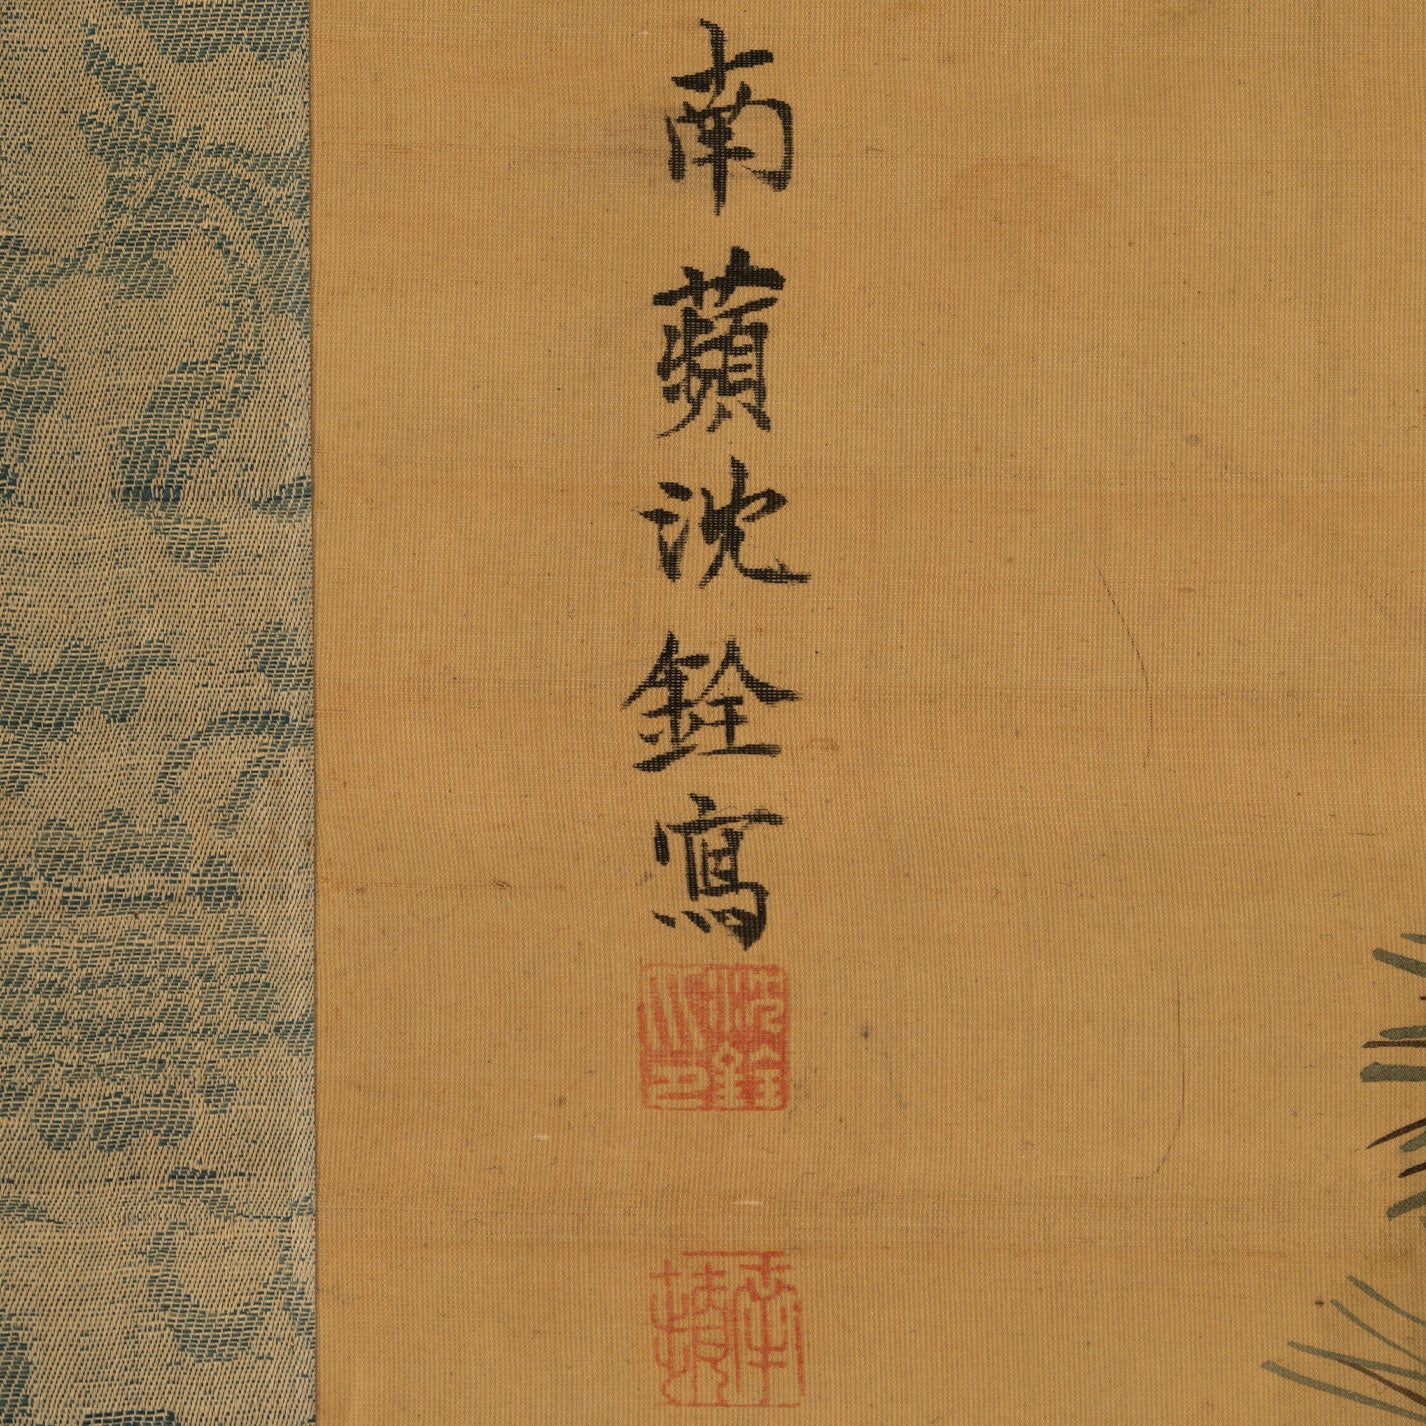 南蘋沈銓寫
沈銓之印
南蘋